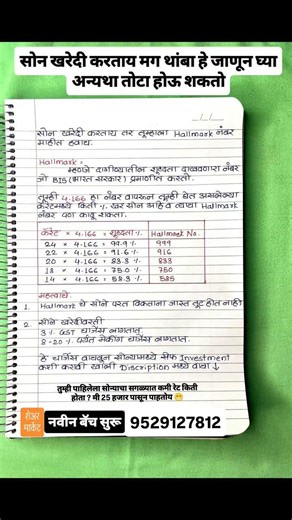 सोन खरेदी करताय मग थांबा हे जाणून घ्या
अन्यथा तोटा होऊ शकतो
सोन खरेदी करताय तर तुम्हाला Hallmark नंबर
माहीत हवाय.
Hallmark =
म्हणजे दागिन्यातील शुद्धता दाखवणारा नंबर
जो BIS (भारत सरकार) प्रमाणीत करतो.
तुम्ही 4.166 हा नंबर वापरून तुम्ही घेत असलेल्या
कॅरेटमध्ये किती % खर सोन आहे व त्याचा Hallmark
नंबर पण काढू शकता.
कॅरेट × 4.166 = शुद्धता % Hallmark No.
24 × 4.166 = 99.9 % 999
22 × 4.166 = 91.6 % 916
20 × 4.166 = 83.3 % 833
18 × 4.166 = 75.0 % 750
14 × 4.166 = 58.3 % 585
महत्वाचे
1. Hallmark चे सोने परत विकताना जास्त तूट होत नाही
2. सोने खरेदीवरती
3 % GST चार्जेस लागतात.
8-20 % पर्यंत मेकींग चार्जेस लागतात.
हे चार्जेस वाचवून सोन्यामध्ये सेफ Investment
कशी करावी खाली Discription मध्ये वाचा ↓
तुम्ही पाहिलेला सोन्याचा सगळ्यात कमी रेट किती
होता ? मी 25 हजार पासून पाहतोय 😁
शेअर
मार्केट
नवीन बॅच सुरू 9529127812